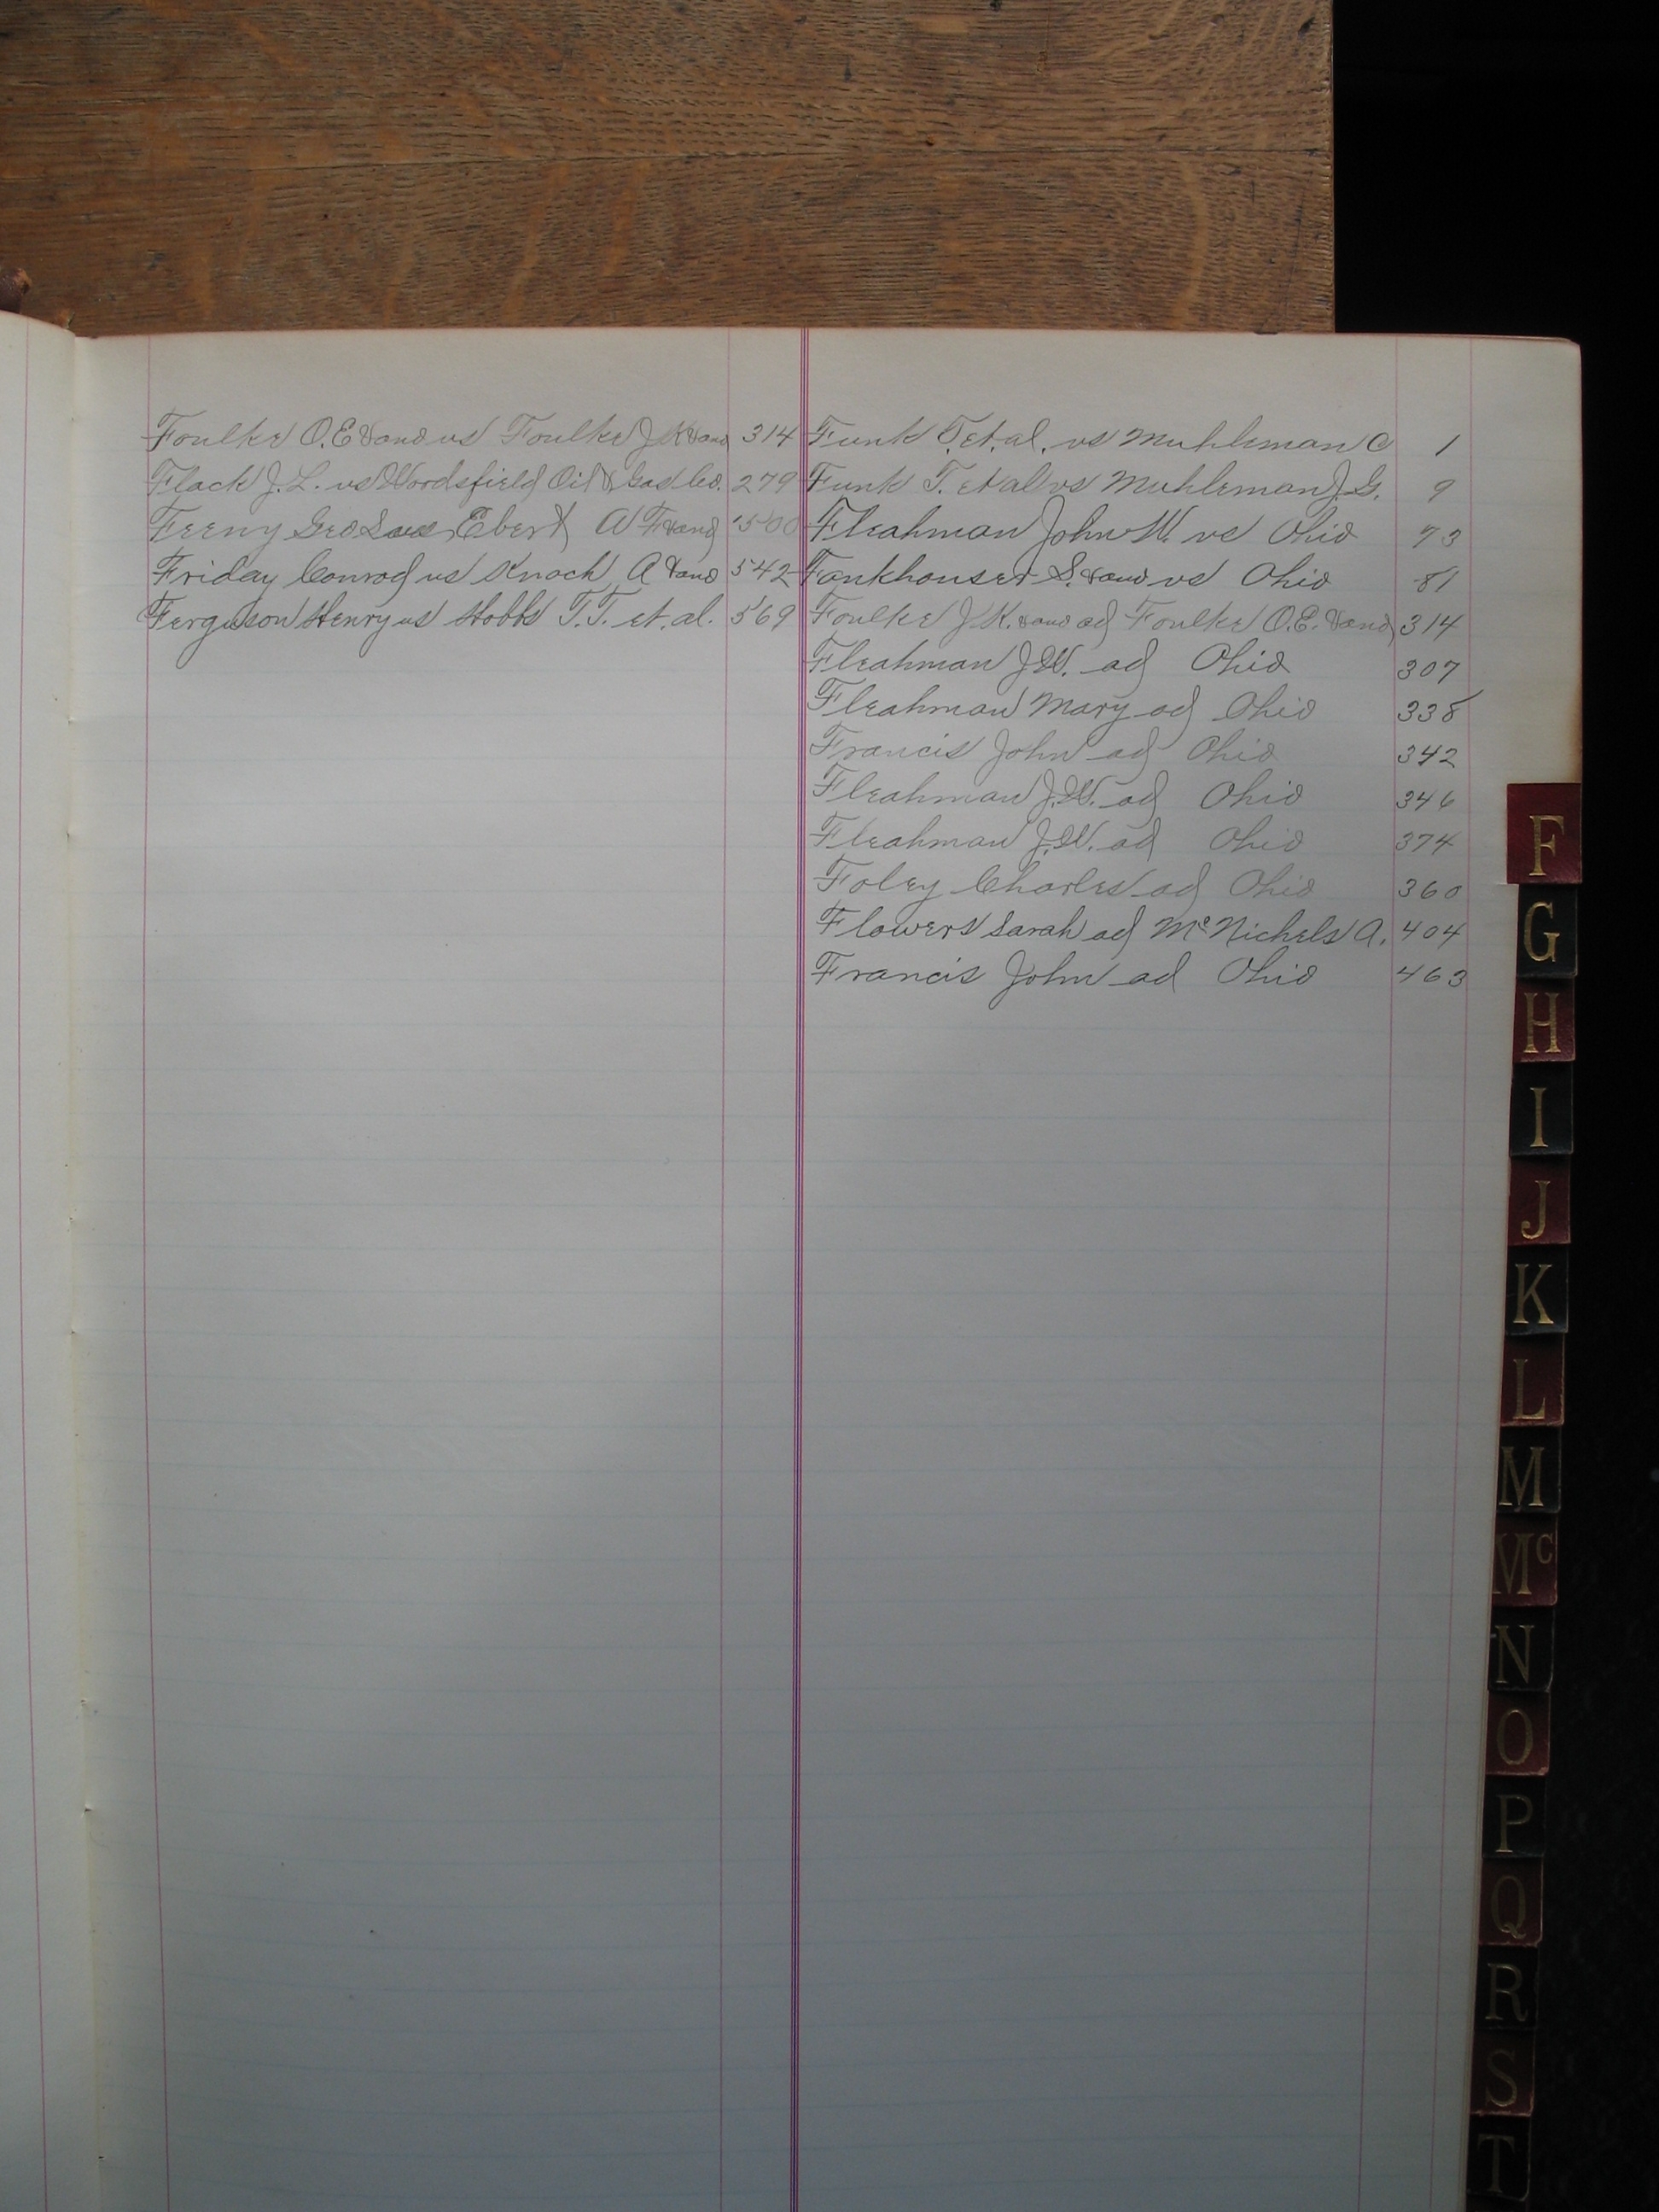 Foulke O.E &ano vs Foulke J K &ano 314
Flack J. L. vs Woodsfield Oil & Gas Co. 279
Feeny Geo Ebert A F &ano 500
Friday Conrad vs Knoch A &ano 542
Ferguson Henry vs Hobbs T.T. et. al. 569
Funk T. et. al. vs Muhleman C 1
Funk T. et al vs Muhleman J. G. 9
Fleahman John W. vs Ohio 73
Fankhouser S. &ano vs Ohio 81
Foulke J K. &ano ad Foulke O.E. &ano 314
Fleahman J.W. ad Ohio 307
Fleahman Mary ad Ohio 338
Francis John ad Ohio 342
Fleahman J.W. ad Ohio 346
Fleahman J.W. ad Ohio 374
Foley Charles ad Ohio 360
Flowers Sarah ad McNichols A. 404
Francis John ad Ohio 463
F
G
H
I
J
K
L
M
Mc
N
O
P
Q
R
S
T